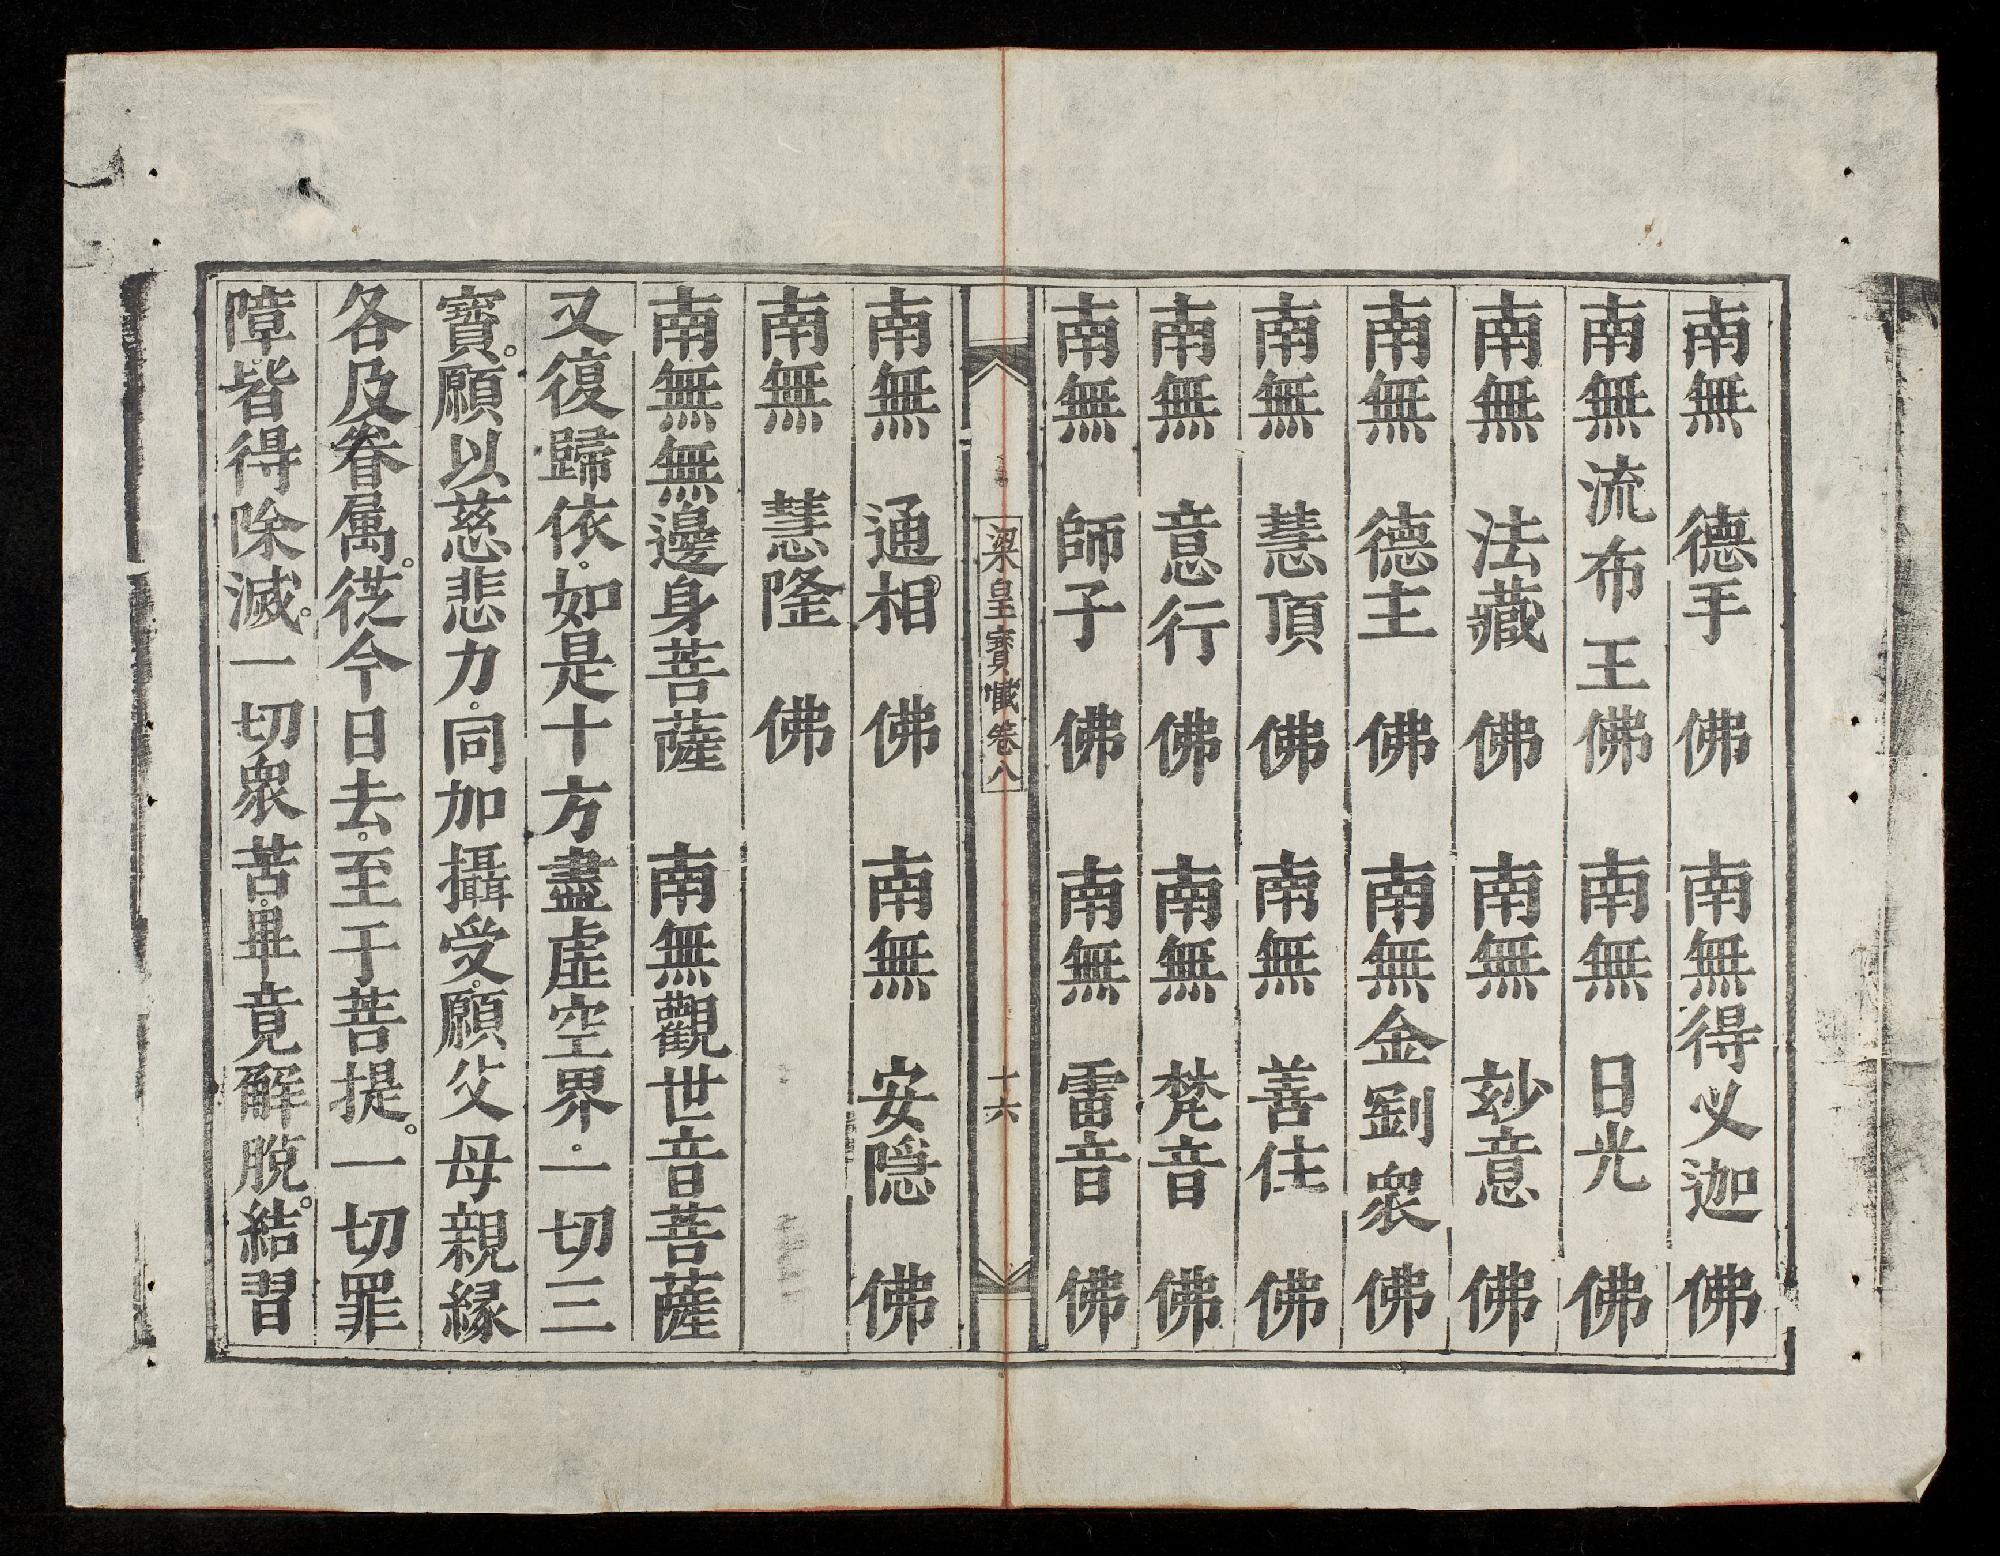 南無德手佛　南無得乂迦佛
南無流布王佛　南無日光佛
南無法藏佛　南無玅意佛
南無德主佛　南無金剛衆佛
南無慧頂佛　南無善住佛
南無意行佛　南無梵音佛
南無師子佛　南無雷音佛
梁皇寶懺卷八　十六
南無通相佛　南無安隠佛
南無慧隆佛
南無無邊身菩薩　南無觀世音菩薩
又復歸依。如是十方盡虛空界。一切三
寶。願以慈悲力。同加攝受。願父母親緣
各及眷属。從今日去。至于菩提。一切罪
障皆得除滅。一切衆苦。畢竟解脫。結習